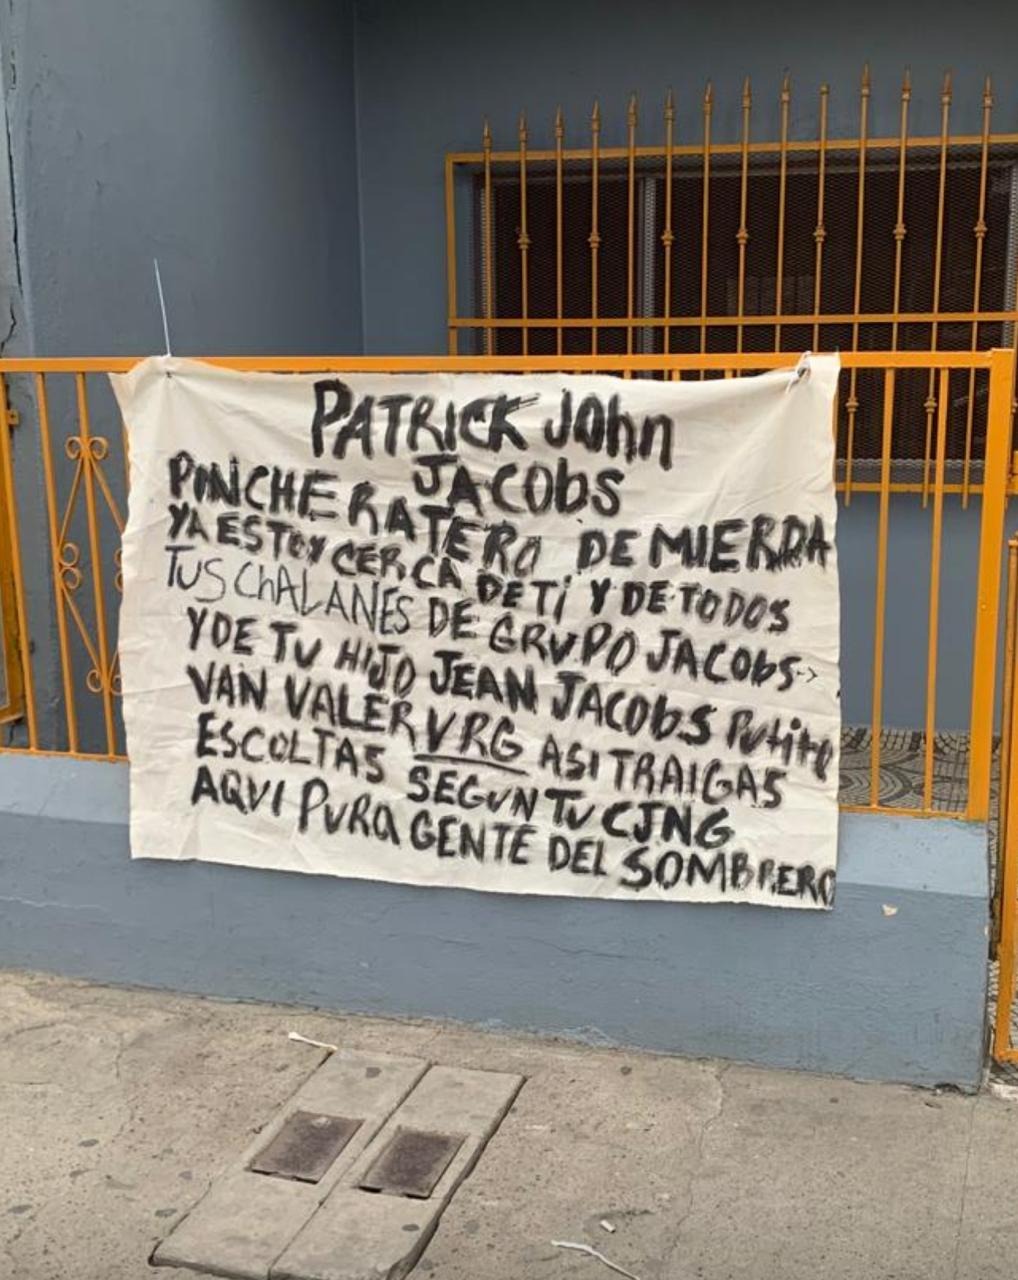 PATRICK John
JACObS
PINCHE RATERO DE MIERDA
YA ESTOY CERCA DE Ti Y DE TODOS
TUS ChALANES DE GRUPO JACObS->
Y DE TU HIJO JEAN JACObS Putito
VAN VALER VRG ASI TRAIGAS
ESCOLTAS SEGUN TU CJNG
AQUI PURA GENTE DEL SOMBRERO